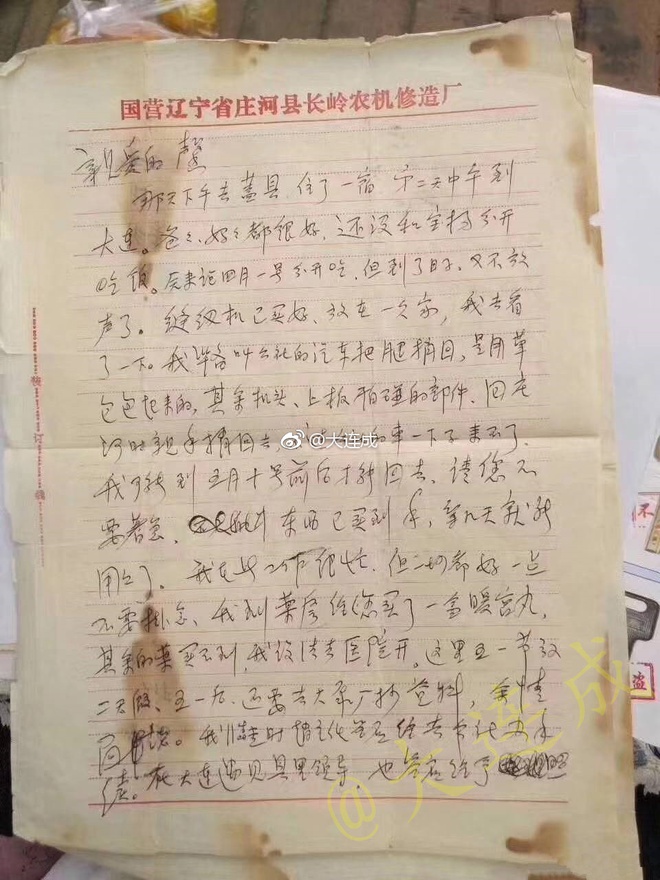 国营辽宁省庄河县长岭农机修造厂
亲爱的
那天下午去盖县、住了一宿 第二天中午到
大连。爸爸、妈妈都很好、还没和宝 分开
吃饭。原来说四月一号分开吃、但到了日子、又不放
声了。缝纫机已买好、放在 家，我去看
了一下。我准备叫公社的汽车把腿捎回，是用草
包包起来的，其余机头、上板 怕碰的部件、回庄
河时亲手捎回去， 一下子来不了、
我可能到五月十号前后才能回去、请您不
要着急、 东西已买到手，等几天就能
用上了。 我在此工作很忙、但一切都好一点
不要挂念、我到药房给您买了一盒暖宫丸，
其余的药买不到，我设法去医院开。这里五一节放
二天假、五一后、还要去大 厂抄资料，
。我 时
续。在大连遇见县里领导、也答应给予
@大连成
@大连成